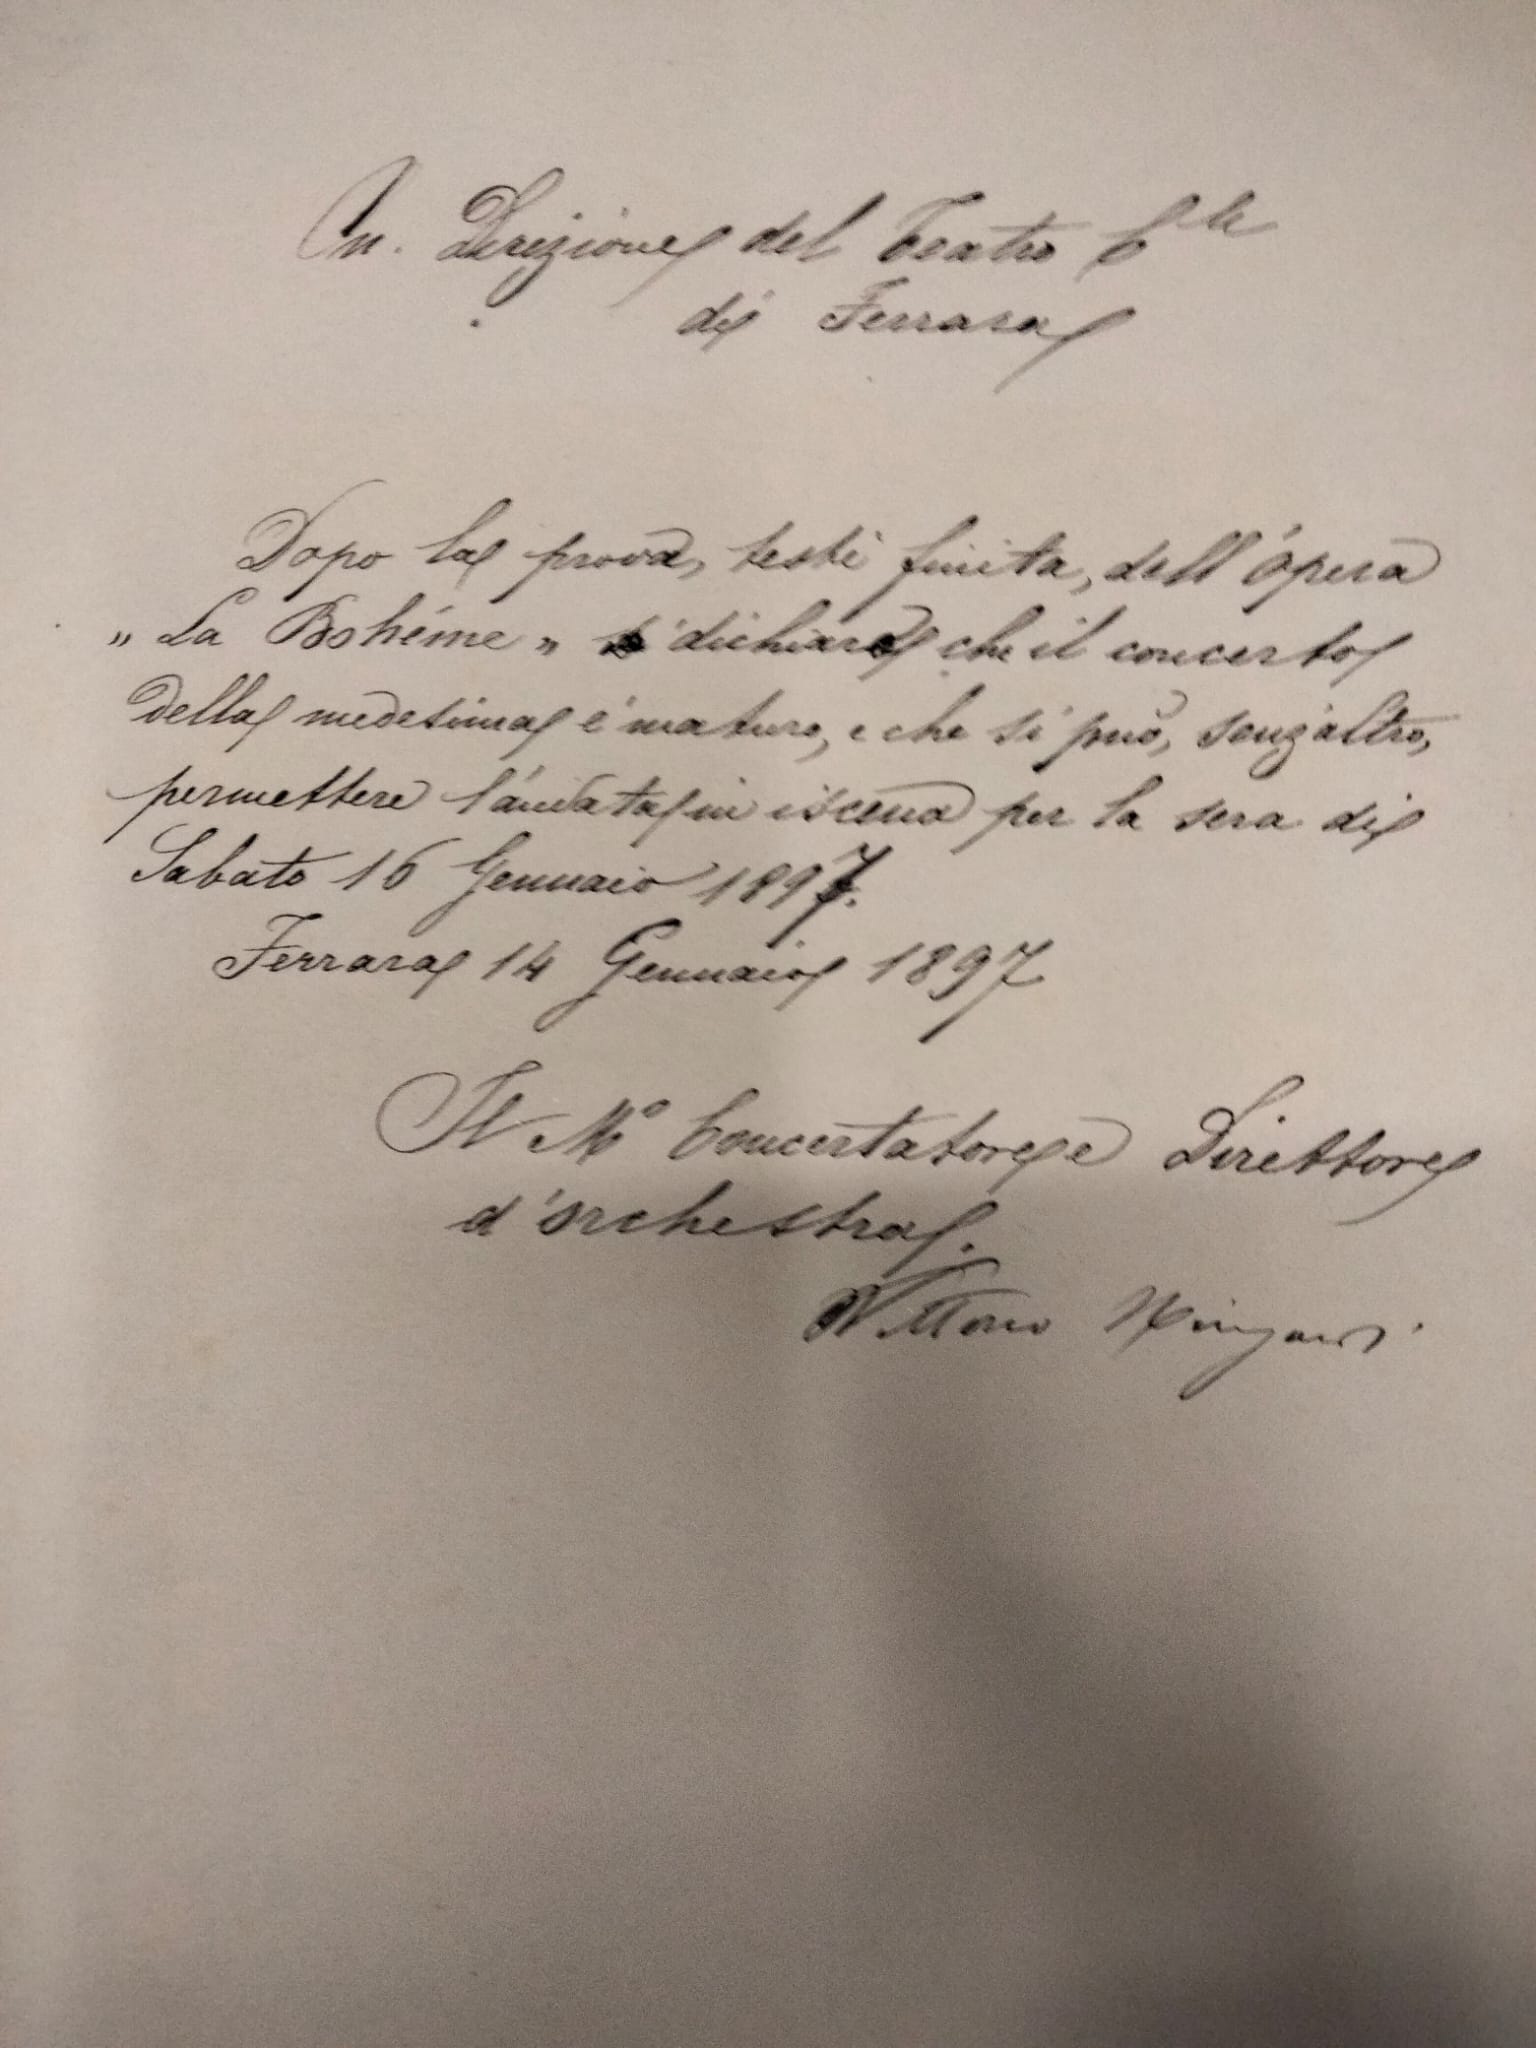 On. Direzione del Teatro C.le
di Ferrara
Dopo la prova, testè finita, dell'opera
„ La Bohéme „ si dichiara che il concerto
della medesima é maturo, e che si può, senz'altro,
permettere l'andata in iscena per la sera di
Sabato 16 Gennaio 1897.
Ferrara 14 Gennaio 1897
Il M° Concertatore e Direttore
d'orchestra.
Vittorio